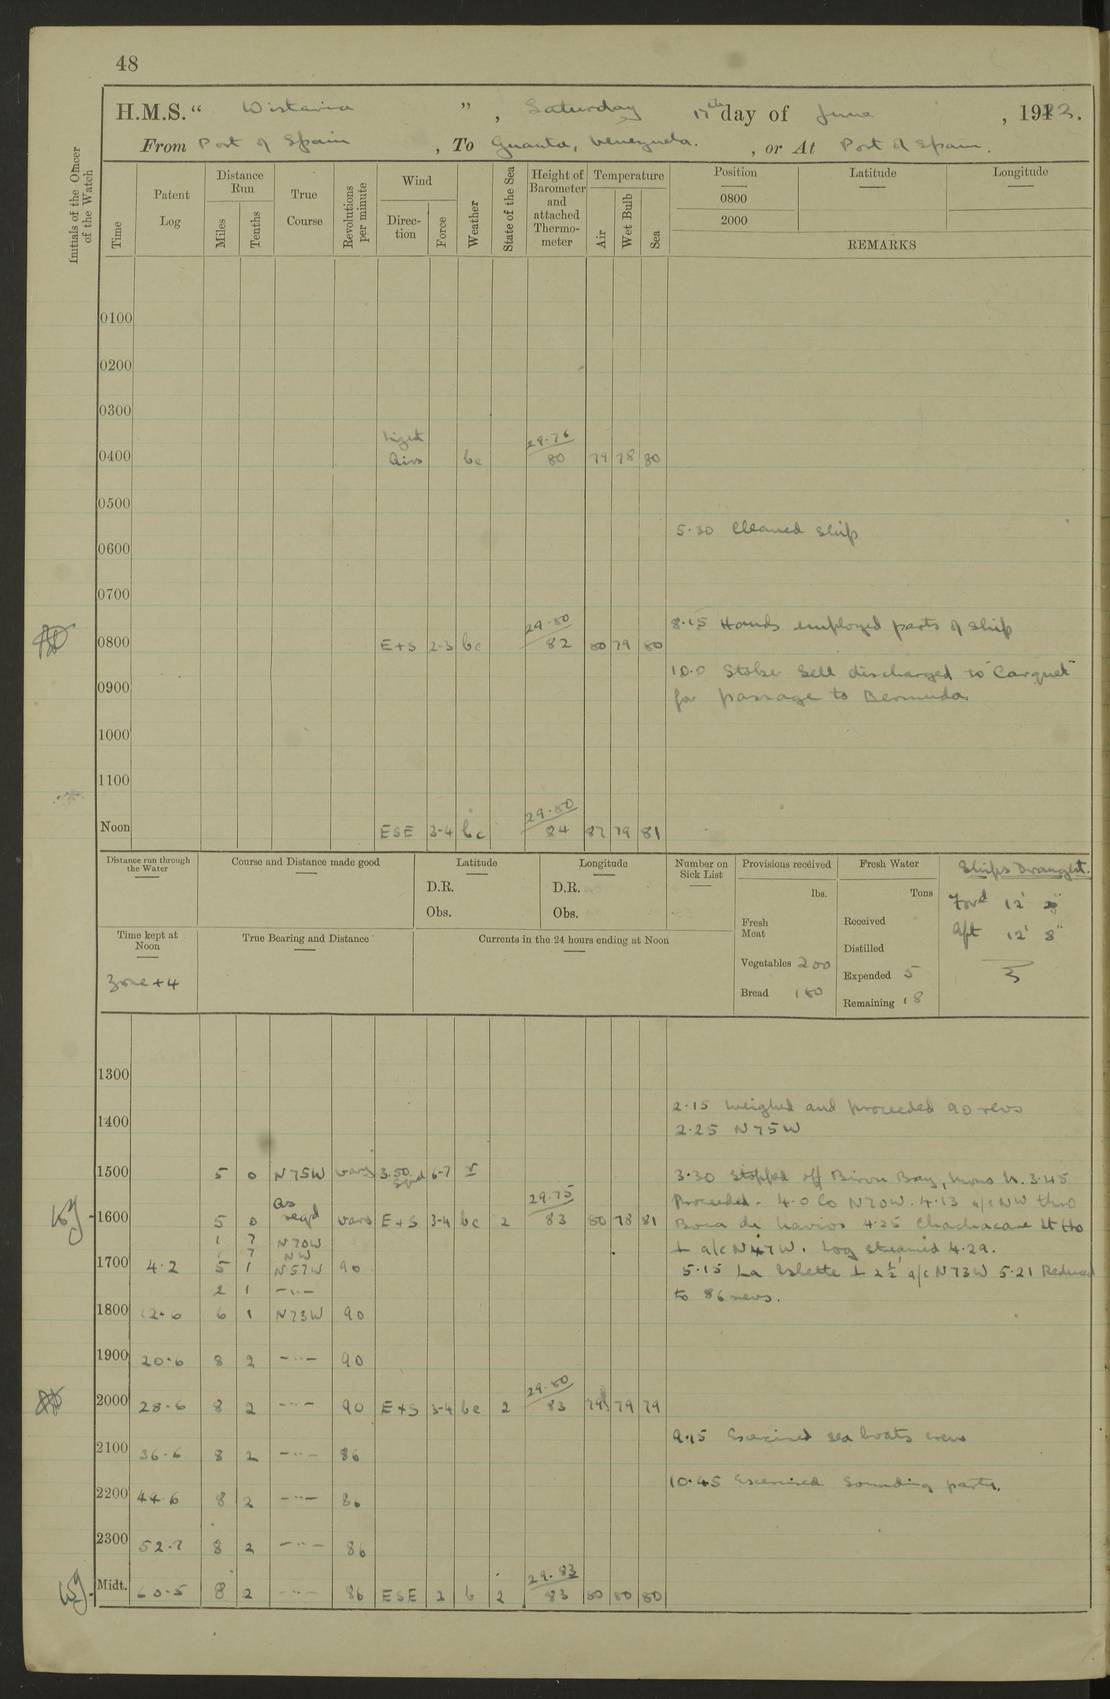 48
H.M.S. “ Wistaria ” , Saturday 17th day of June , 1923.
From Port of Spain , To Guanta, Venezuela. , or At Port of Spain.
Initials of the Officer of the Watch
Time
Patent Log
Distance Run
Miles
Tenths
True Course
Revolutions per minute
Wind
Direction
Force
Weather
State of the Sea
Height of Barometer and attached Thermometer
Temperature
Air
Wet Bulb
Sea
Position Latitude Longitude
0800
2000
REMARKS
0100
0200
0300
Light 29.76
0400 Airs bc 80 79 78 80
0500
5.30 Cleaned ship
0600
0700
29.80 8.15 Hands employed parts of ship
0800 E+S 2-3 bc 82 80 79 80
10.0 Stoker Sell discharged to "Carquet"
0900 for passage to Bermuda.
1000
1100
29.80
Noon ESE 3-4 bc 84 87 79 81
Distance run through the Water
Course and Distance made good
Latitude
D.R.
Obs.
Longitude
D.R.
Obs.
Number on Sick List
Provisions received
lbs.
Fresh Meat
Vegetables 200
Bread 180
Fresh Water
Tons
Received
Distilled
Expended 5
Remaining 18
Ships Draught.
Ford 12'
Aft 12' 8"
Time kept at Noon
Zone +4
True Bearing and Distance
Currents in the 24 hours ending at Noon
1300
2.15 Weighed and proceeded 90 revs
1400 2.25 N75W
1500 5 0 N75W vars 3.50 6-7 3.30 Stopped off Biron Bay, 3.45
As 29.75 Proceeded. 4.0 Co N70W. 4.13 a/c NW thro
1600 5 0 req'd vars E+S 3-4 bc 2 83 80 78 81 Boca de Navios 4.25 Chachacare Lt Ho
1 7 N70W ⊥ a/c N47W. Log streamed 4.29.
7 NW
1700 4.2 5 1 N57W 90 5.15 La Islette ⊥ 2½' a/c N73W 5.21 Reduced
2 1 -"- to 86 revs.
1800 12.6 6 1 N73W 90
1900 20.6 8 2 -"- 90
29.80
2000 28.6 8 2 -"- 90 E+S 3-4 bc 2 83 79 79 79
9.15 Exercised sea boats crew
2100 36.6 8 2 -"- 86
10.45 Exercised Sounding party.
2200 44.6 8 2 -"- 86
2300 52.7 8 2 -"- 86
29.83
Midt. 60.5 8 2 -"- 86 ESE 2 b 2 83 80 80 80